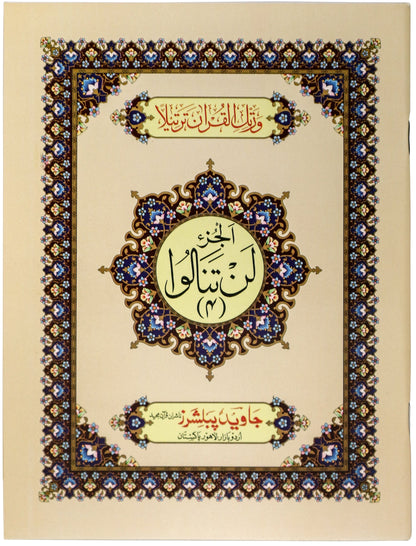 ورتل القرآن ترتیلا
الجزء
لَنْ تَنَالُوا
(۴)
جاوید پبلشرز ناشران قرآن مجید
اردو بازار لاہور پاکستان